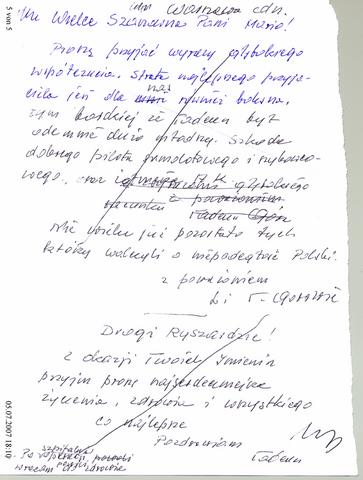 Warszawa dn.
Wielce Szanowna Pani Mario!
Proszę przyjąć wyrazy głębokiego
współczucia. Strata najlepszego przyja-
ciela jest dla nas również bolesna,
tym bardziej że Tadeusz był
odemnie dużo młodszy. Szkoda
dobrego pilota samolotowego i szybowco-
wego. oraz głębokiego
szacunku z poważaniem
Tadeusz
Nie wielu już pozostało tych
którzy walczyli o niepodległość Polski.
z poważaniem
Drogi Ryszardzie!
z okazji Twoich Imienin
przyjm proszę najserdeczniejsze
życzenia, zdrowia i wszystkiego
co najlepsze
Pozdrawiam
Tadeusz
szpitalu
Po operacji,
wracam do zdrowia
5 von 5
05.07.2007 18:10